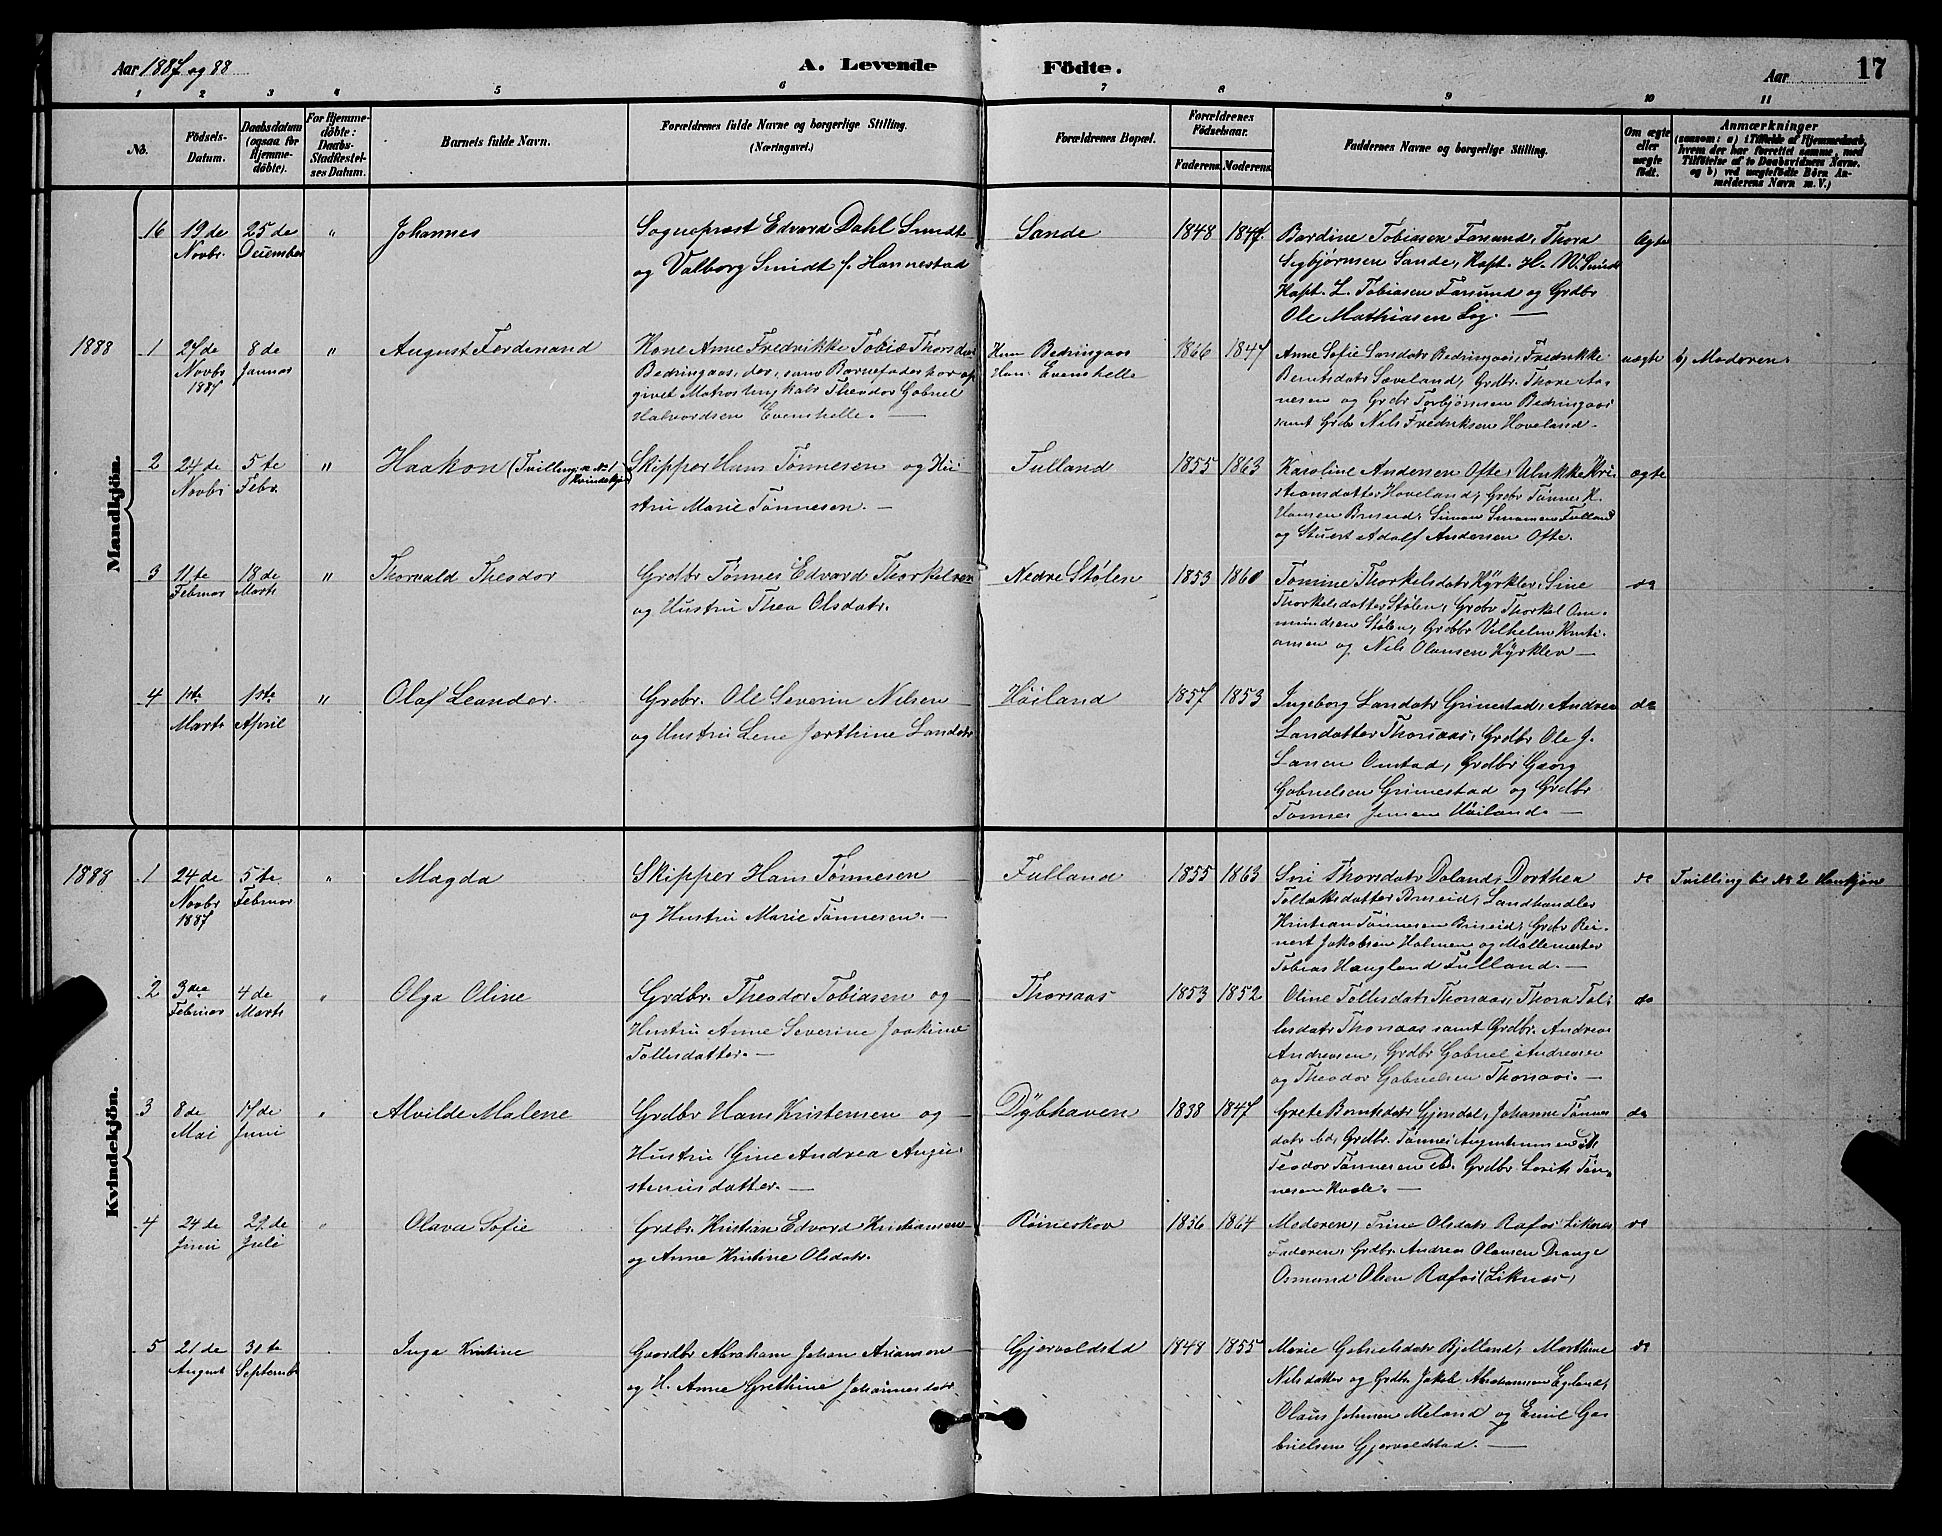 Aar 1887 og 88
A. Levende
Födte.
Aar
17
1 2 3 4 5 6 7 8 9 10 11
No.
Födsels-
Datum.
Daabsdatum
(ogsaa for
Hjemme-
döbte).
For Hjemme-
döbte:
Daabs-
Stadfæstel-
ses Datum.
Barnets fulde Navn.
Forældrenes fulde Navne og borgerlige Stilling.
(Næringsvei.)
Forældrenes Bopæl.
Forældrenes
Födselsaar.
Faderens. Moderens.
Faddernes Navne og borgerlige Stilling.
Om ægte
eller
uægte
födt.
Anmærkninger
(saasom: a) i Tilfælde af Hjemmedaab,
hvem der har forrettet samme, med
Tilföielse af to Daabsvidners Navne.
og b) ved uægtefödte Börn An-
melderens Navn m. V.)
Mandkjön.
16 19de Novbr. 25de December " Johannes
Sogneprest Edvard Dahl Smidt
og Valborg Smidt f. Hannestad
Sande 1848 1847.
Bardine Tobiasen Farsund, Thora
Sigbjørnsen Sande, Kapt. H. W. Smidt
Kapt. L. Tobiasen Farsund og Grdbr
Ole Mathiasen Log. —
Ægte
1888 1 27de Novbr 1887 8de Januar " August Ferdinand
Kone Anne Fredrikke Tobias Thorsdatr
Bedringaas, der, som Barnefader har op
givet Matros Ungkarl Theodor Gabriel
Halvordsen Evenshelle. —
Hun Bedringaas
Han: Evenshelle
1866 1847
Anne Sofie Larsdatr Bedringaas, Fredrikke
Berntsdatr Sæveland, Grdbr. Thore Aa-
nesen og Grdbr Torbjørnsen Bedringaas
samt Grdbr Nils Fredriksen Hoveland.
uægte b) Moderen.
2 24de Novbr 5te Febr. " Haakon (Tvilling se No 1 Kvindekjøn)
Skipper Hans Tønnesen og Hu-
stru Marie Tønnesen. —
Fulland 1855 1863
Karoline Andersen Ofte, Ulrikke Kri-
stiansdatter Hoveland, Grdbr Tønnes K.
Hansen Briseid, Simon Simonsen Fulland
og Stuert Adolf Andersen Ofte.
ægte
3 11te Februar 18de Marts " Thorvald Theodor
Grdbr Tønnes Edvard Thorkelsen
og Hustru Thea Olsdatr.
Nedre Stølen 1853 1860
Tomine Thorkelsdatr Kÿrklev, Sine
Thorkelsdatter Stølen, Grdbr Thorkel Om-
mundsen Stølen, Grdbr Vilhelm Kristi-
ansen og Nils Olausen Kÿrklev —
do
4 1ste Marts 1ste April " Olaf Leander.
Grdbr. Ole Severin Nilsen
og Hustru Lene Jørthine Larsdatr
Høiland 1857 1853
Ingeborg Larsdatr Grimestad, Andrea
Larsdatter Thorsaas, Grdbr Ole J.
Larsen Omstad, Grdbr Georg
Gabrielsen Grimestad og Grdbr
Tønnes Jensen Høiland. —
do
Kvindekjön.
1888 1 24de Novbr 1887 5te Februar " Magda
Skipper Hans Tønnesen
og Hustru Marie Tønnesen. —
Fulland 1855 1863
Siri Thorsdatr Daland, Dorthea
Tollaksdatter Briseid, Landhandler
Kristian Tønnesen Briseid, Grdbr Rei-
nert Jakobsen Holmen og Møllemester
Tobias Haugland Fulland. —
do Tvilling se No 2 Hankjøn
2 3die Februar 4de Marts " Olga Oline
Grdbr. Theodor Tobiasen og
Hustru Anne Severine Joakime
Tollisdatter. —
Thorsaas 1853 1852
Oline Tollisdatr Thorsaas, Thora Tol-
lisdatr Thorsaas samt Grdbr. Andreas
Andreasen, Grdbr Gabriel Andreasen
og Theodor Gabrielsen Thorsaas. —
do
3 8de Mai 17de Juni " Alvilde Malene
Grdbr Hans Kristensen og
Hustru Gine Andrea Augu-
steniusdatter. —
Dÿbhaven 1838 1847
Grete Berntsdatr Gjendal, Johanne Tønnes
datr bd, Grdbr. Tønnes Augustinussen
Teodor Tønnesen D. Grdbr Lorits Tøn-
nesen Kvale. —
do
4 24de Juni 29.de Juli " Olava Sofie
Grdbr. Kristian Edvard Kristiansen
og Anne Kristine Olsdatr.
Røineskov 1856 1864
Moderen, Trine Olsdatr Rafos Liknes
Faderen, Grdbr. Andreas Olausen Drange
Osmund Olsen Rafos (Liknes)
do
5 21de August 30te September Inga Kristine
Gaardbr Abraham Johan Ariansen
og H. Anne Grethine Johannesdatr.
Gjervoldstd 1848 1855
Marie Gabrielsdatr Bjelland, Marthine
Nilsdatter og Grdbr Jakob Abrahamsen Egeland,
Olaus Johnsen Meland og Emil Ga-
brielsen Gjervoldstad. —
do